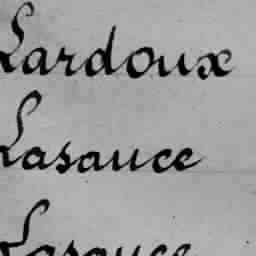 Lardoux
Lasauce
Lasauce